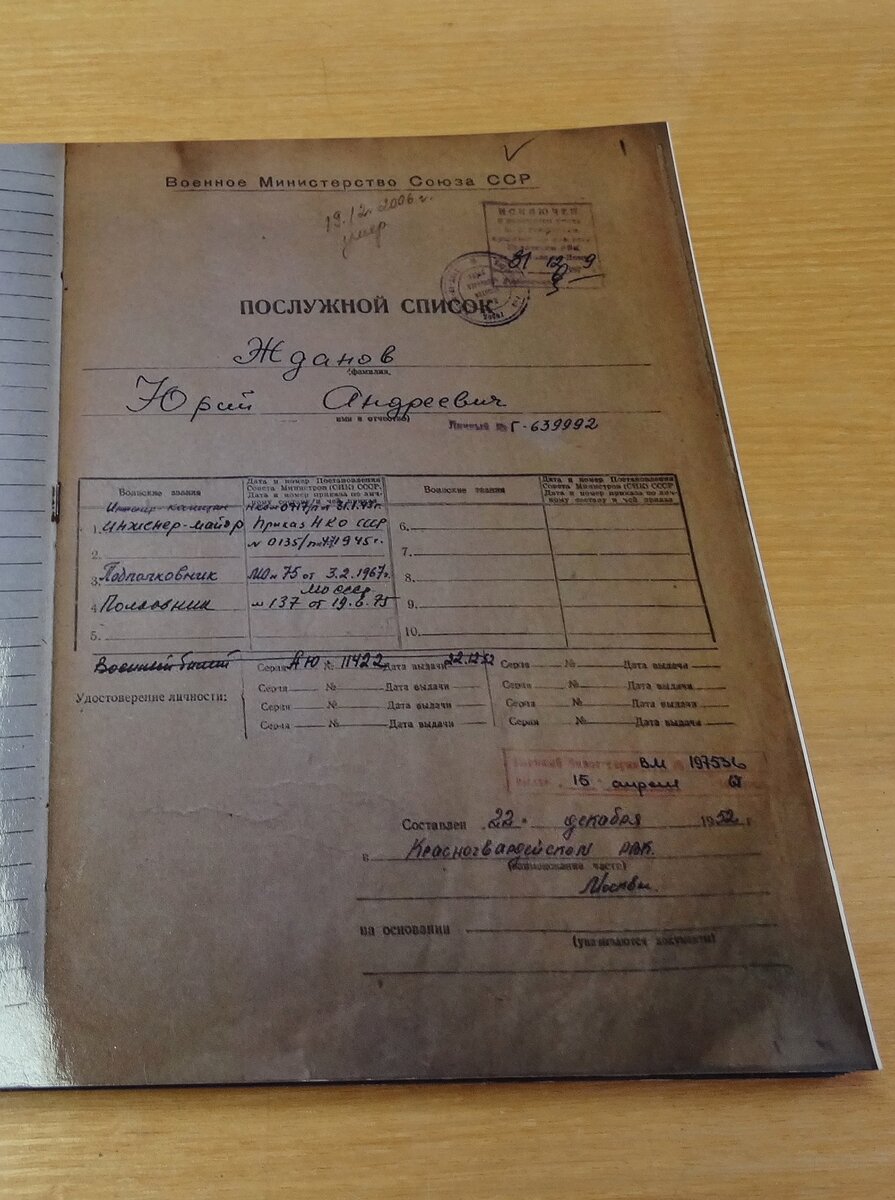 Военное Министерство Союза ССР
19.12.2006 г.
умер
ИСКЛЮЧЕН
31 12 9
ПОСЛУЖНОЙ СПИСОК
Жданов
(фамилия)
Юрий Андреевич
имя и отчество)
Личный № Г-639992
Воинские звания
Дата и номер Постановления Совета Министров (СНК) СССР. Дата и номер приказа по личному составу и чей приказ
Воинские звания
Дата и номер Постановления Совета Министров (СНК) СССР Дата и номер приказа по личному составу и чей приказ
Инженер-капитан НКО № 0417/п
1. Инженер-майор Приказ НКО СССР 6.
2. № 0135/п 1945 г. 7.
3. Подполковник МО № 75 от 3.2.1967 г. 8.
МО СССР
4. Полковник № 137 от 19.6.75 9.
5. 10.
Военный билет Серия АЮ № 11422 Дата выдачи 22.12.52 Серия № Дата выдачи
Удостоверение личности: Серия № Дата выдачи Серия № Дата выдачи
Серия № Дата выдачи Серия № Дата выдачи
Серия № Дата выдачи Серия № Дата выдачи
Военный билет серия ВМ № 197536
15 апреля
Составлен 22. декабря 1952 г.
в Красногвардейском РВК.
(наименование части)
Москвы.
на основании
(указываются документы)